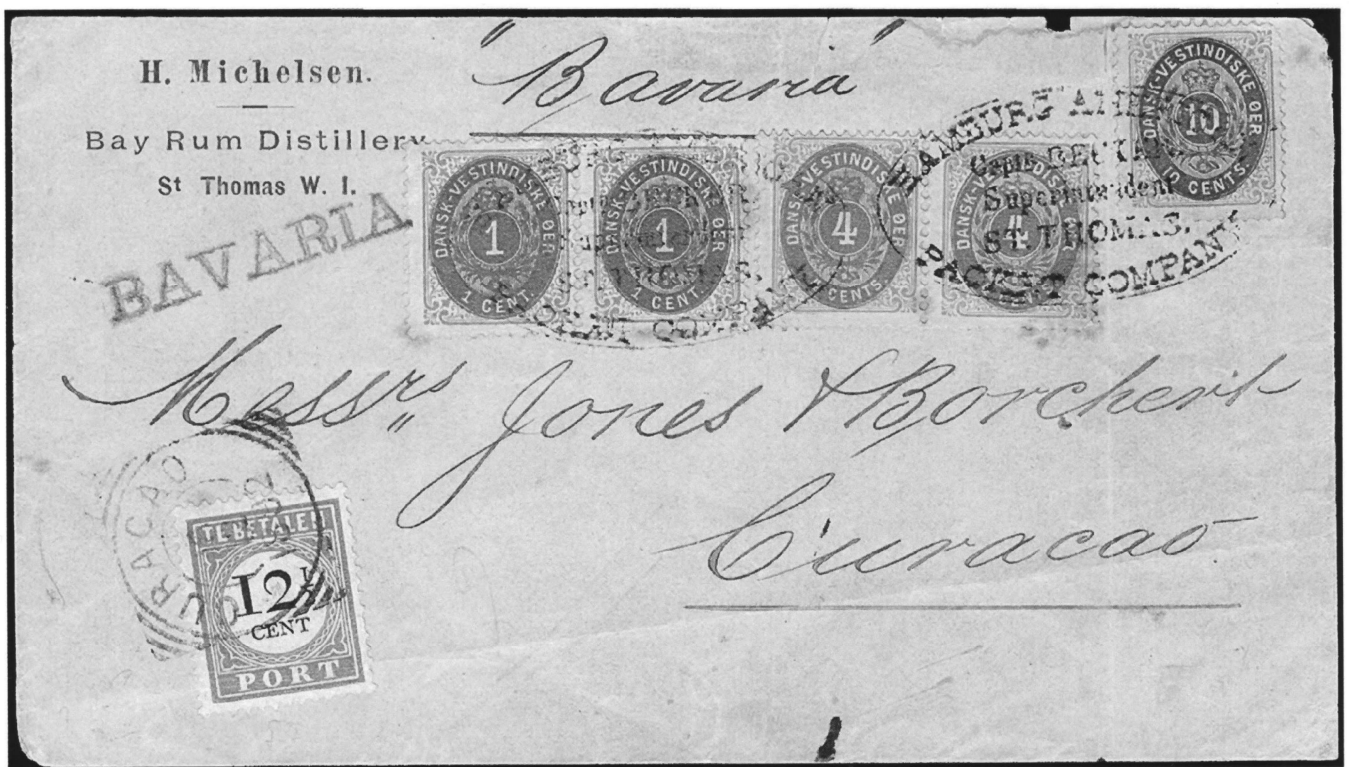 H. Michelsen.
"Bavaria"
Bay Rum Distillery
St Thomas W. I.
BAVARIA
DANSK-VESTINDISKE ØER
1
1 CENT
DANSK-VESTINDISKE ØER
1
1 CENT
DANSK-VESTINDISKE ØER
4
CENTS
DANSK-VESTINDISKE ØER
4
CENTS
DANSK-VESTINDISKE ØER
10
10 CENTS
HAMBURG
Superintendent
ST. THOMAS.
PACKET COMPANY
ST. THOMAS.
PACKET COMPANY
Messrs Jones & Borchert
Curacao
CURACAO
TE BETALEN
12½
CENT
PORT